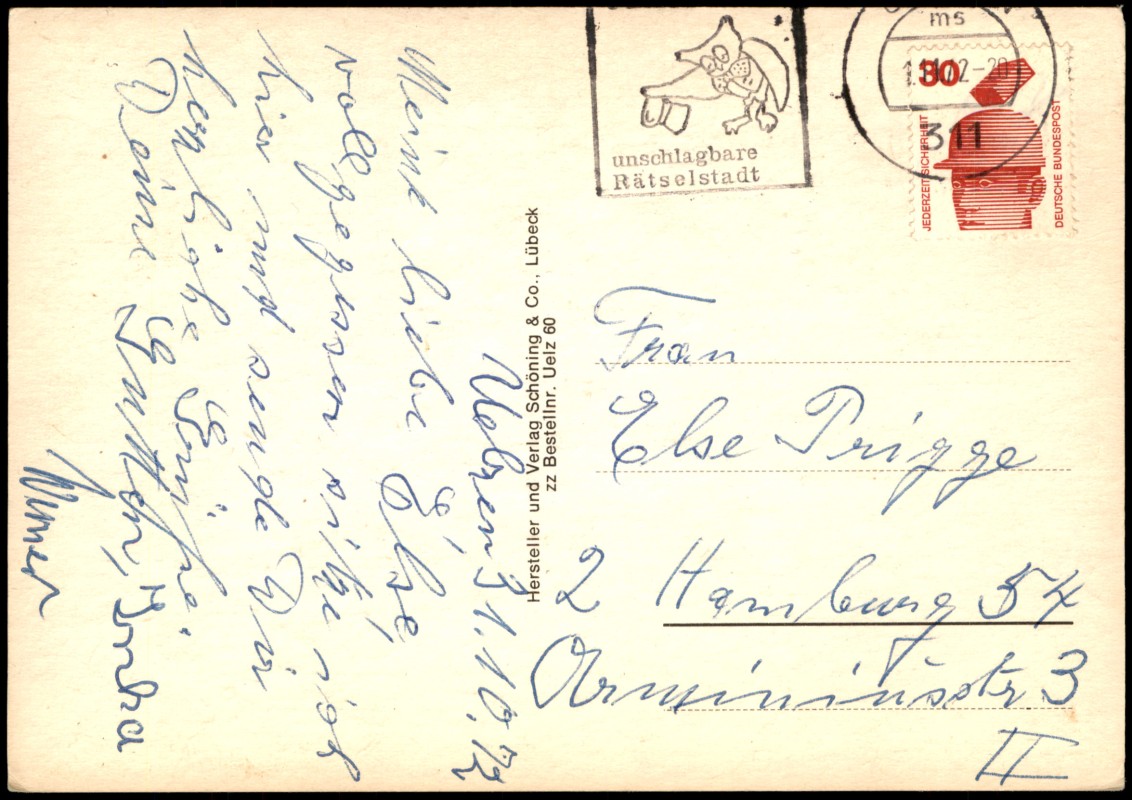 Uelzen 31.10.72
Meine liebe Else,
vollgegessen sitze ich
hier und sende Dir
herzliche Grüße.
Deine
Hersteller und Verlag Schöning & Co., Lübeck
zz Bestellnr. Uelz 60
unschlagbare
Rätselstadt
ms
311
30
JEDERZEIT SICHERHEIT
DEUTSCHE BUNDESPOST
Frau
Else Prigge
2 Hamburg 54
Arminiusstr 3
II